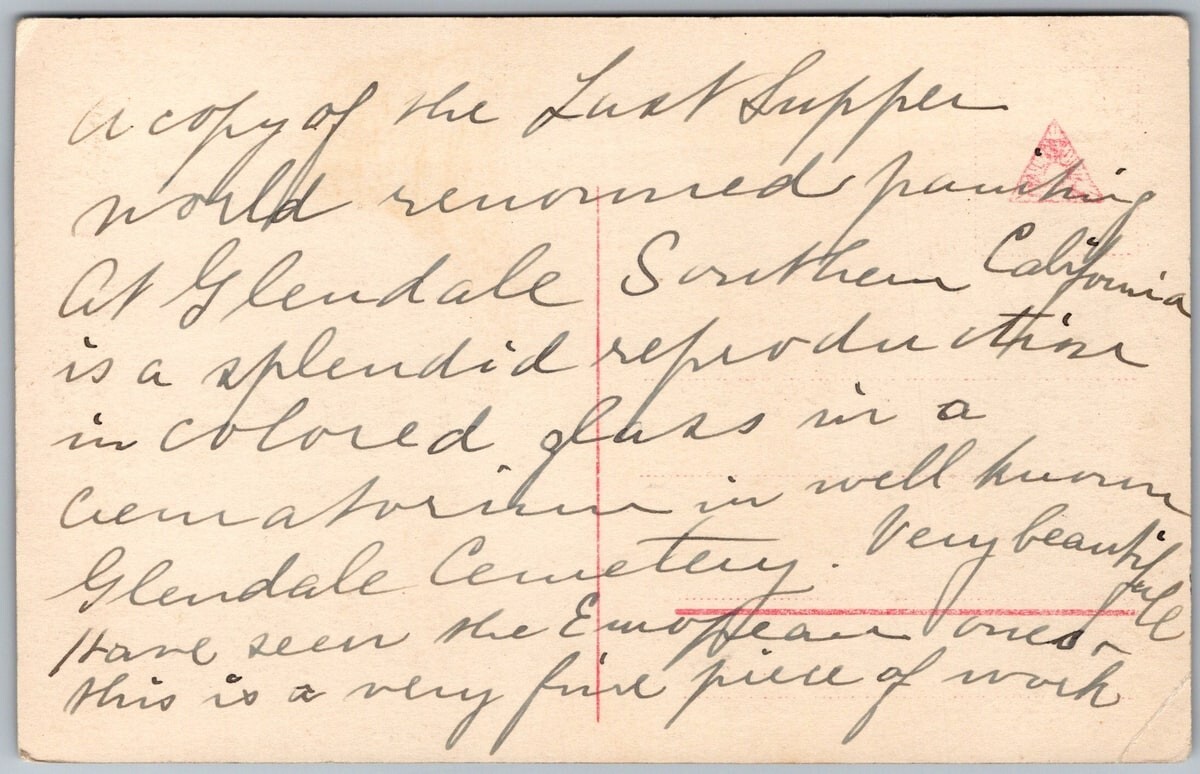 A copy of the Last Supper
world renowned painting
At Glendale Southern California
is a splendid reproduction
in colored glass in a
Crematorium in well known
Glendale Cemetery. Very beautifull
Have seen the European ones -
this is a very fine piece of work